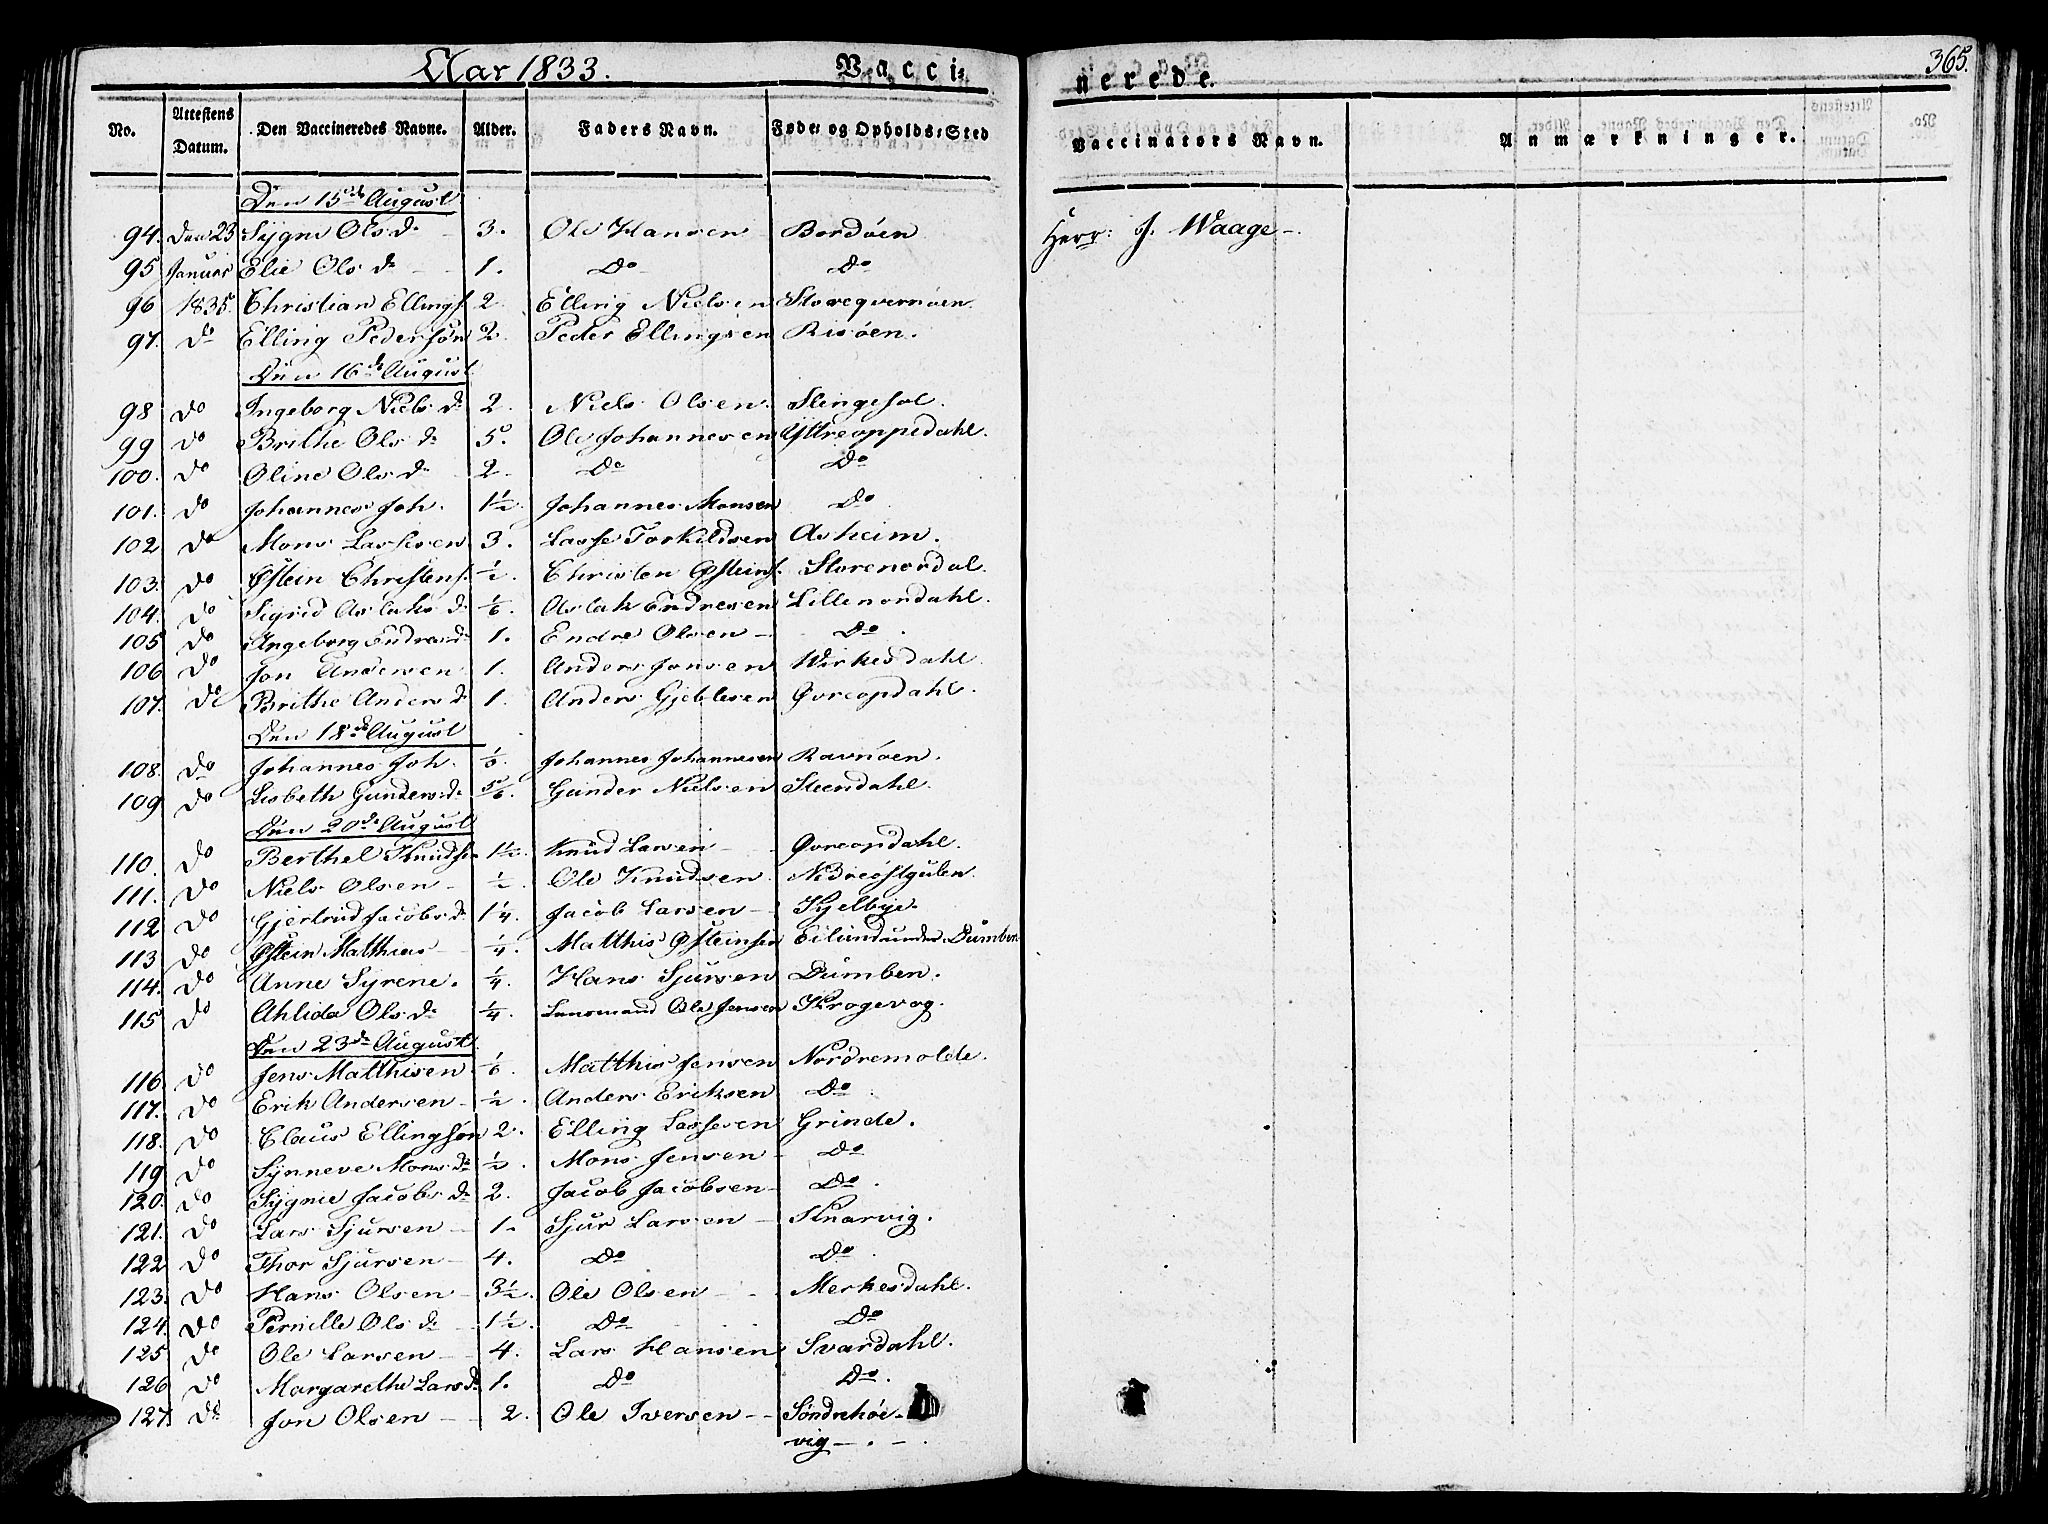 Aar 1833. Vacci= nerede. 365.
No. Attestens Datum. Den Vaccineredes Navne. Alder. Faders Navn. Føde= og Opholds=Sted Vaccinators Navn. Anmærkninger.
Den 15de August
94. Den 23 Sygni Ols d. 3. Ole Hansen Bordöen Herr: J. Waage
95 Januar Elie Ols d. 1. Do Do
96 1835. Christian Ellings. 2. Elling Nielsen Storeqvernöen
97. do Elling Pedersøn 2. Peder Ellingsen Risöen.
Den 16de August
98 do Ingeborg Niels d. 2. Niels Olsen.
99 do Brithe Ols d. 5. Ole Johannesen Yttreoppedahl.
100. do Oline Ols d. 2. Do Do
101. do Johannes Joh. 1½. Johannes Monsen Do
102 do Mons Lassesen 3. Lasse Torkildsen Asheim.
103. do Østein Christens. ½. Christen Østeins. Storenordal.
104. do Sigrid Aslaks d. 1/6. Aslak Endresen Lillenordahl.
105 do Ingeborg Endres d. 1. Endre Olsen Do.
106 do Jon Andersen 1. Anders Jonsen Wirkesdahl.
107. do Brithe Anders d. 1. Anders Gjeblesen Qvreopdahl.
Den 18de August
108. do Johannes Joh. 1/6. Johannes Johannesen Ravnöen.
109 do Lisbeth Gunders d. 5/6. Gunder Nielsen Steendahl.
Den 20de August
110. do Berthel Knuds. 1½. Knud Larsen Qvreopdahl.
111. do Niels Olsen ½. Ole Knudsen Nedreöstgulen
112 do Gjertrud Jacobs d. 1¼. Jacob Larsen Kjelbye.
113 do Østein Matthias ¼. Matthis Østeinsen Eilund under Dumben
114. do Anne Syrene. ¼. Hans Sjursen Dumben.
115 do Ahlida Ols d. ¼. Lensmand Ole Jensen Krogevog.
Den 23de August
116. do Jens Matthisen 1/6. Matthis Jensen Nordremolde.
117. do Erik Andersen ½. Anders Eriksen Do
118. do Claus Ellingsøn 2. Elling Lassesen Grinde.
119 do Synneve Mons d. ½. Mons Jensen Do
120. do Sygnie Jacobs d. 2. Jacob Jacobsen Do.
121. do Lars Sjursen 1. Sjur Larsen Knarvig.
122 do Thor Sjursen 4. Do Do.
123. do Hans Olsen 3½. Ole Olsen Merkesdahl.
124. do Pernille Ols d. 1½. Do Do
125 do Ole Larsen 4. Lars Hansen Svardahl.
126 do Margarethe Lars d. 1. Do Do.
127. do Jon Olsen 2. Ole Iversen Söndrehöe-
vig